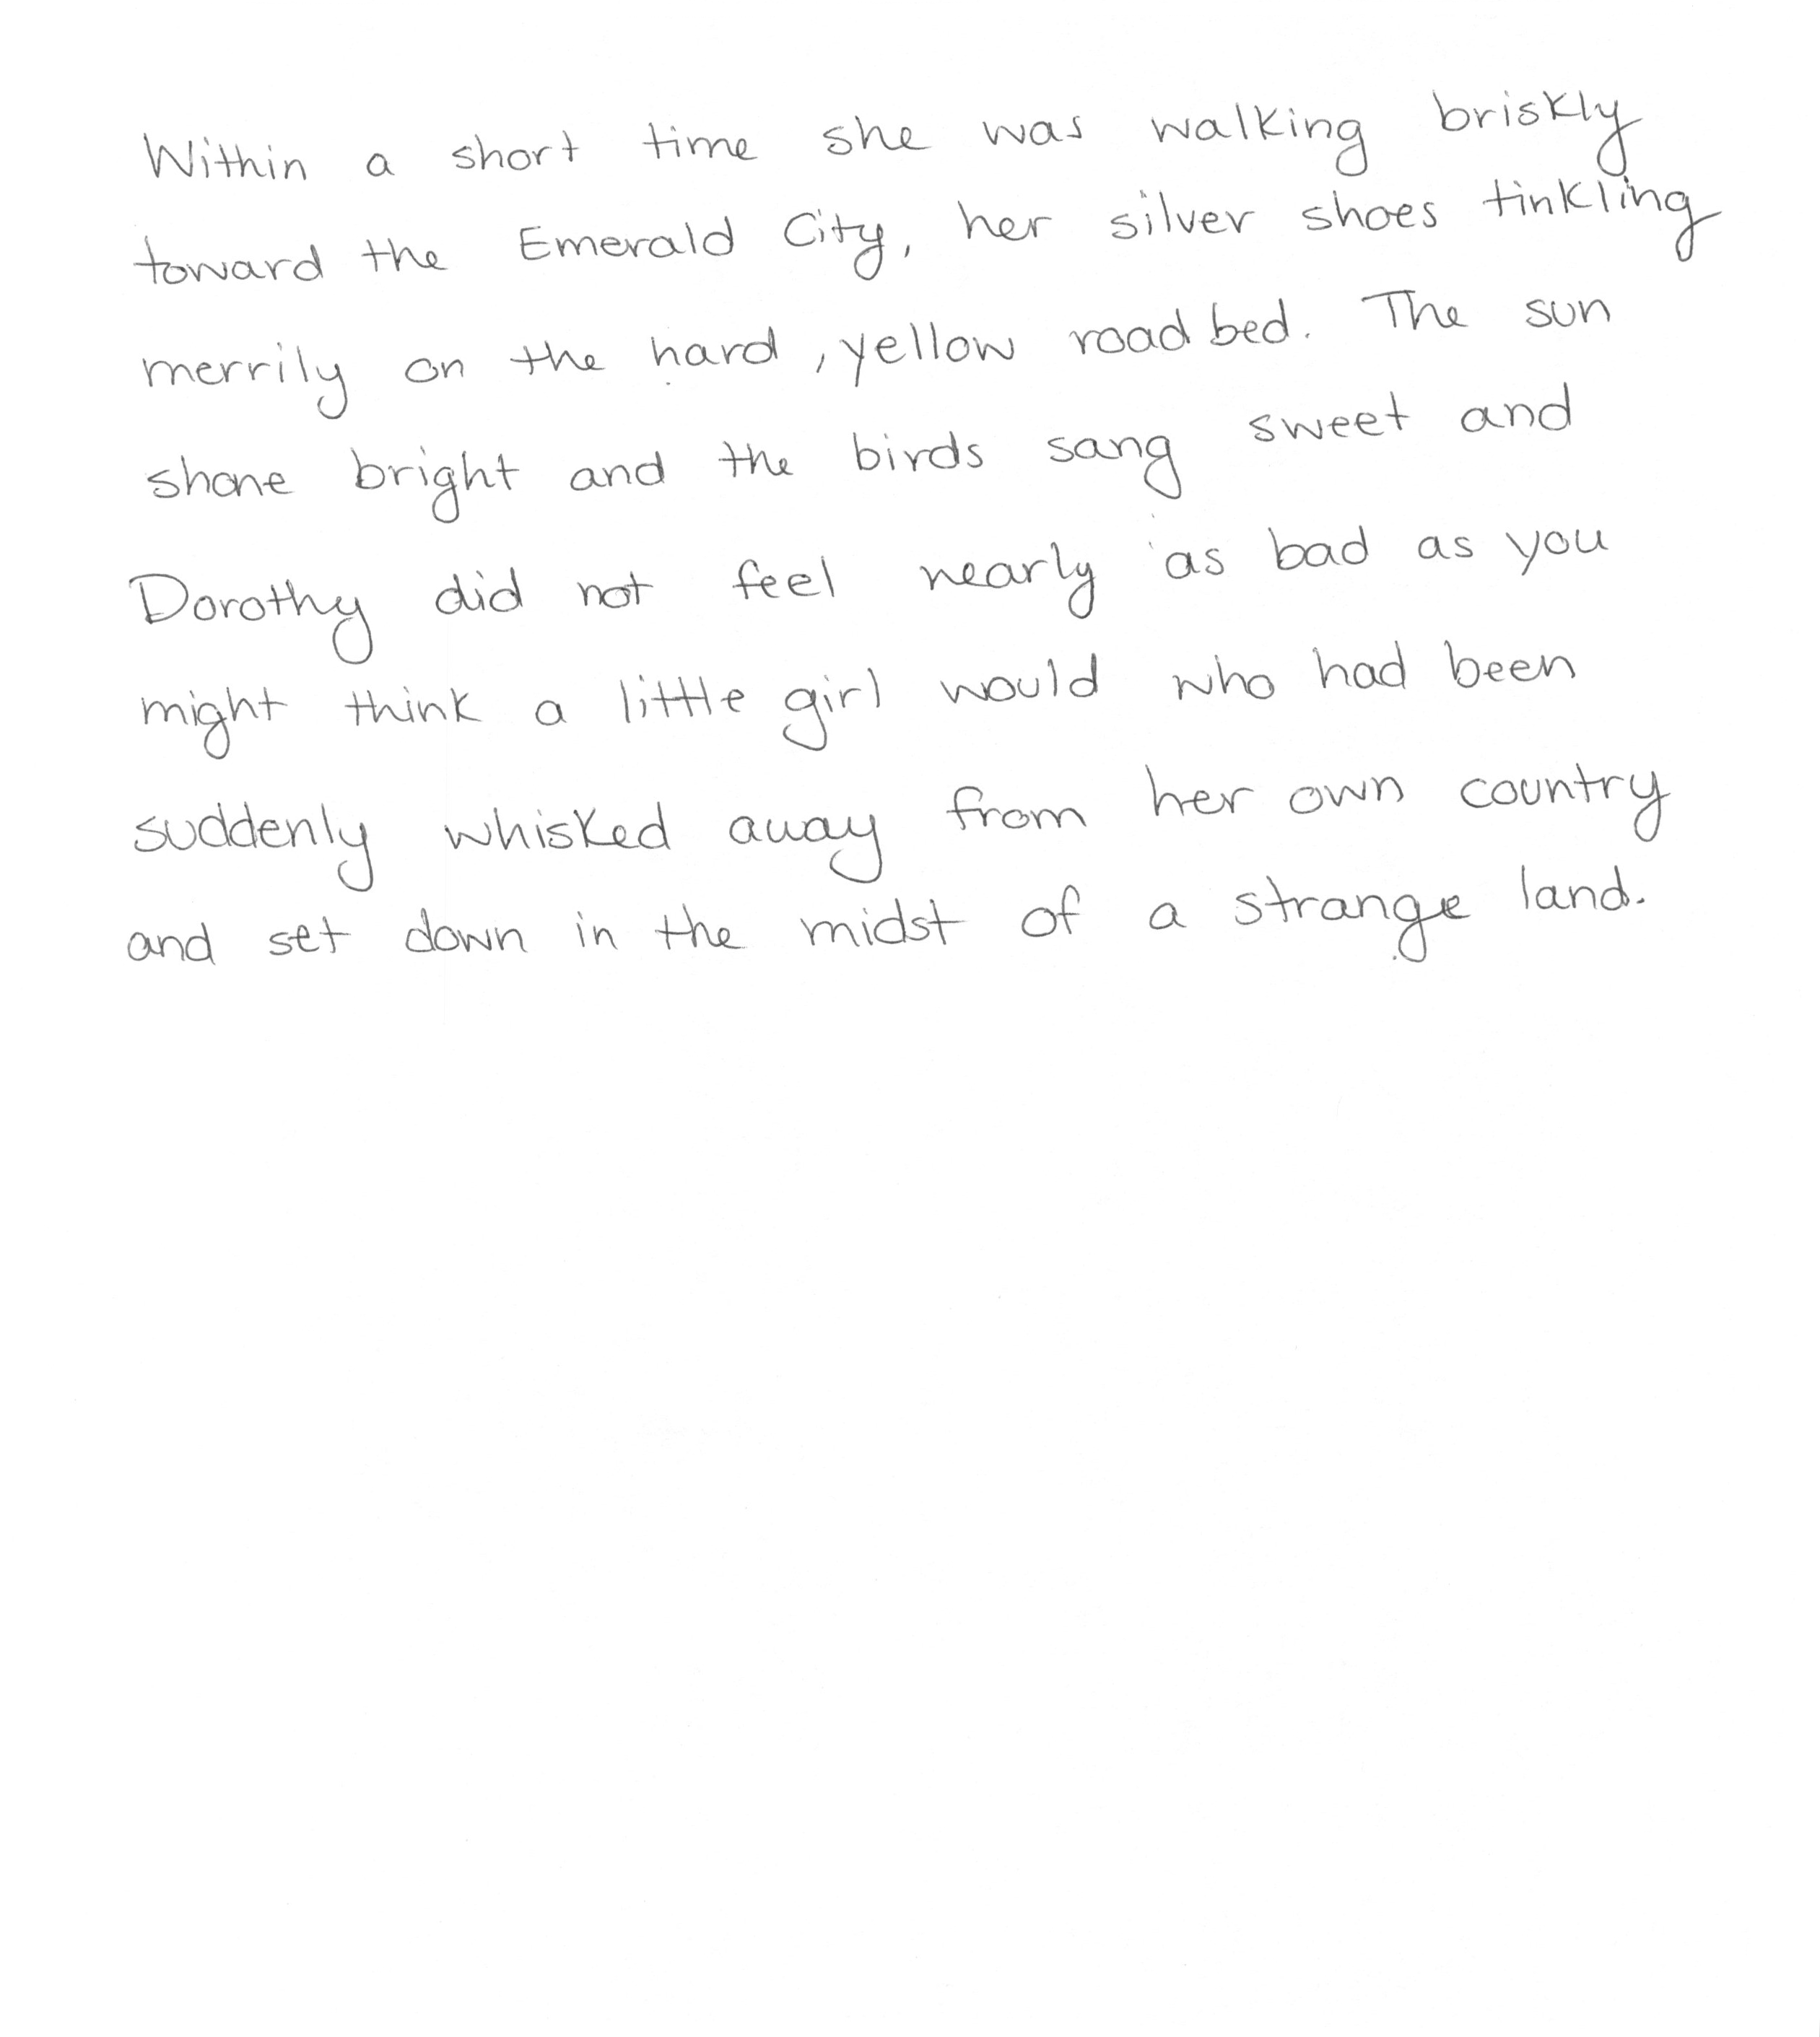 Within a short time she was walking briskly
toward the Emerald City, her silver shoes tinkling
merrily on the hard, yellow road bed. The sun
shone bright and the birds sang sweet and
Dorothy did not feel nearly as bad as you
might think a little girl would who had been
suddenly whisked away from her own country
and set down in the midst of a strange land.